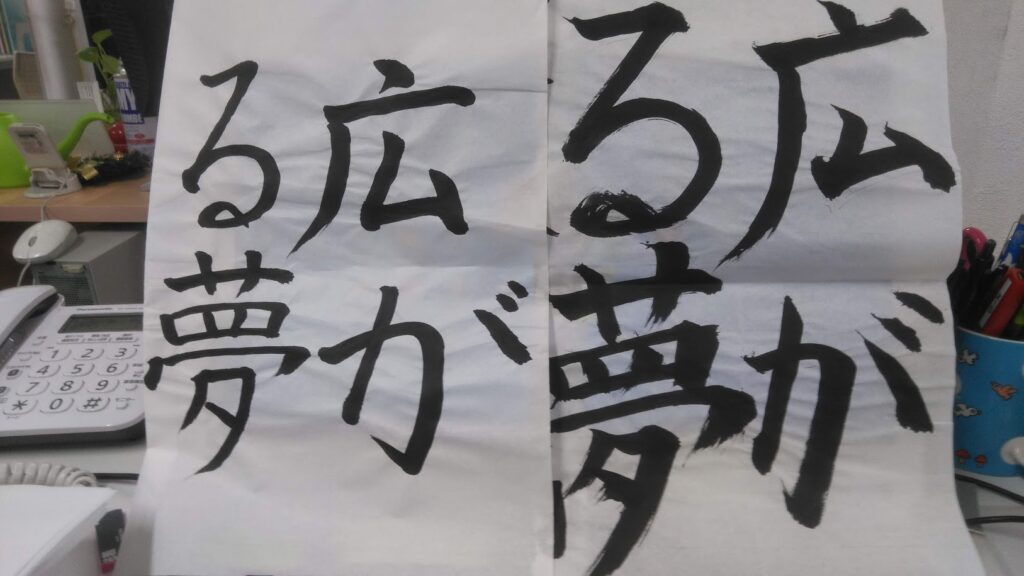 広が
る夢
広が
る夢
Panasonic
1 2 3
4 5 6
7 8 9
* 0 #